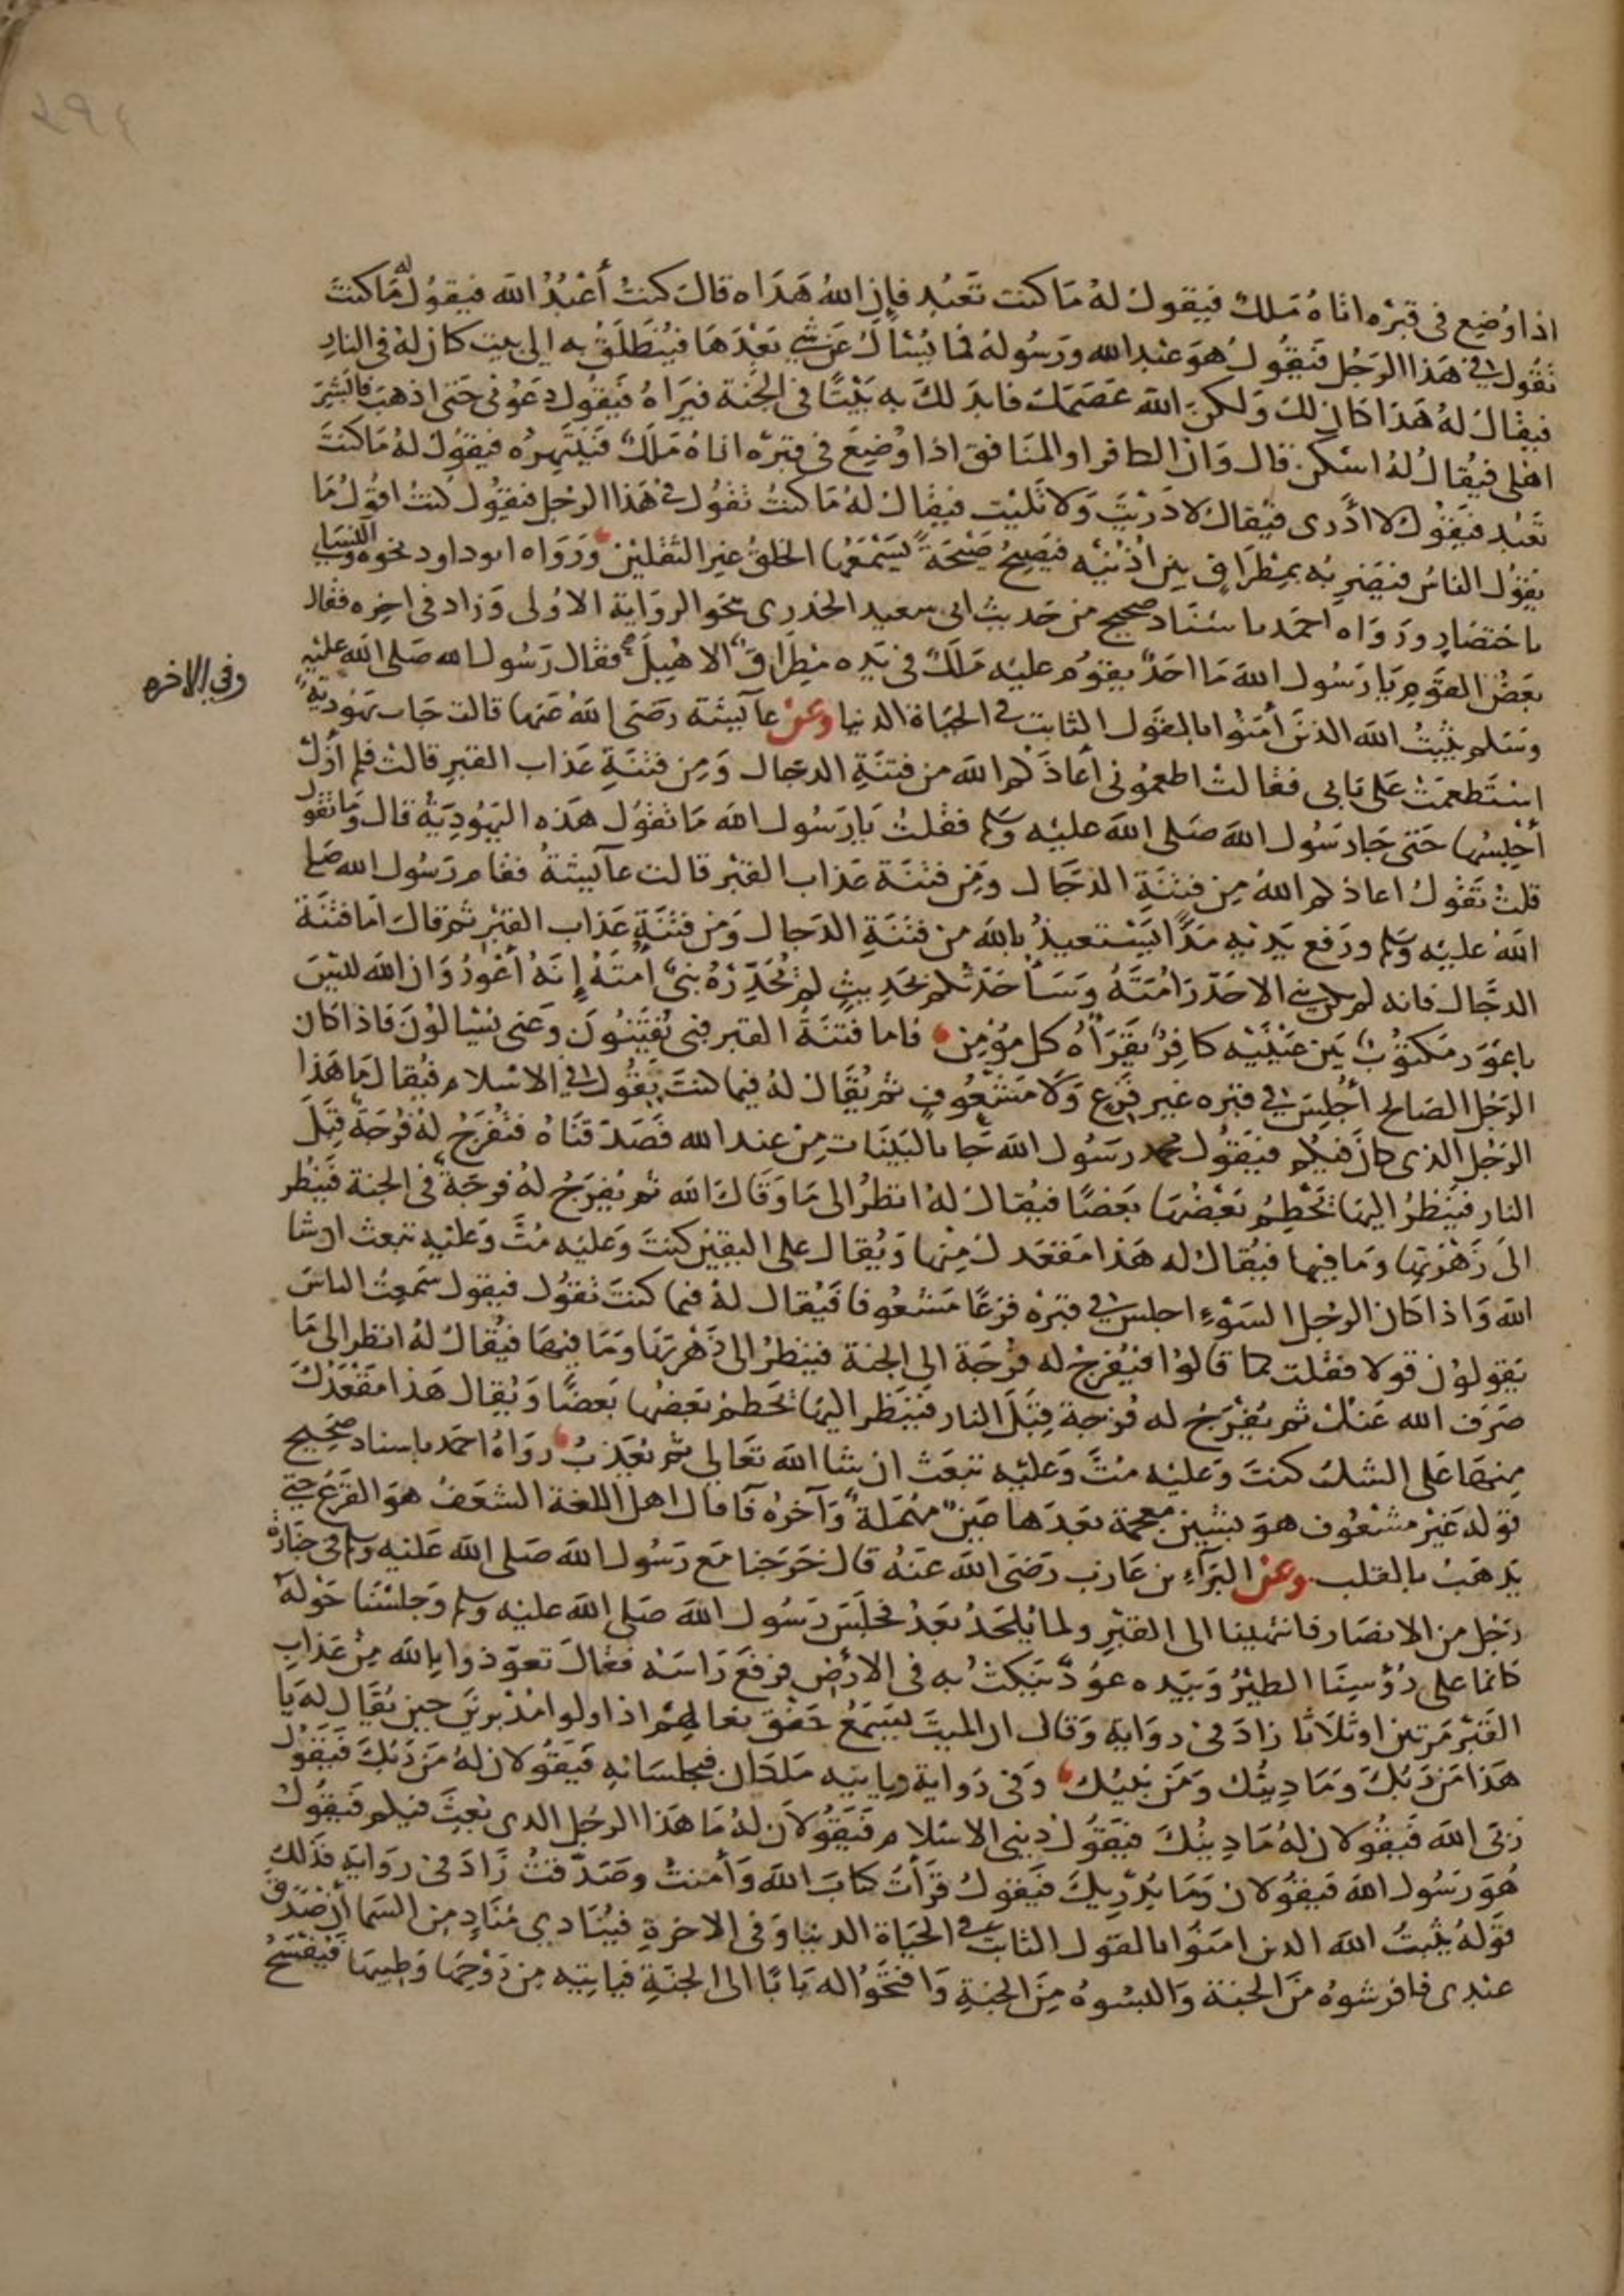 ٤٩٤
اذا وُضِع فى قبرْه اتاهُ مَلكٌ فيقولُ لهُ مَا كنت تَعبُد فإن اللهُ هَدَاه قالَ كنتُ أَعْبُدُ الله فيقوُل لهُ مَا كنتَ
تقُول فى هَذا الرجُل فَيقُولُ هوَ عَبْد الله ورَسُولهُ فما يُسْألُ عَن شىٍ بَعْدَهَا فيُنطَلَقُ به الى بيت كان لهُ فى النارِ
فيقالُ لهُ هَذَا كان لكَ وَلكنَ اللهَ عَصَمَكَ فابدَلكَ به بَيْتًا فى الجنة فيَراهُ فَيقُول دعَوْنى حَتى اذهبَ فابشِّرَ
اهلى فيُقالُ لهُ اسْكن. قال وَان الكافر او المنَافق اذا وُضِعَ فى قبرْه اتاهُ مَلكٌ فَيَنتَهِرُه فيقُولُ لهُ مَا كنتَ
تعْبُد فيَقُولُ لا أدْرى فيُقال لا دَرَيْتَ وَلا تَلَيْتَ فيقالُ لهُ مَا كنتُ تقُولُ فى هَذا الرجُل فيقُول كنتُ اقوُلُ مَا
يَقُوُل الناسُ فيَضرِبُه بمِطرَاقٍ بين اُذُنيْه فيَصِيحُ صَيْحَةً يَسْمَعُها الخلقُ غير الثقلين وَرَوَاه ابوداود نخوه والنسَاى
باختصَارٍ ورَوَاه احمَد باسْنَاد صحيح من حَديث ابى سعيد الخدرى نحوَ الروَاية الاوُلى وَزاد فى اخِره فقال
بعَضُ القوَمِ يَا رَسُول اللهَ مَا احَدٌ يقوُم عليْه مَلكٌ فى يَده مِطرَاقٌ الا هِيلَ فقال رَسُول الله صَلى الله عليْهِ
وَسَلم يُثبِّتُ اللهَ الذينَ اٰمَنوُا بالقوَل الثابت فى الحيَاة الدنيا وعن عآئيشة رضىَ اللهُ عَنها قالت جَات يَهوُديَّةٌ
وفى الاخره
اسْتَطعمَتْ عَلى بَابى فقالتْ اطعموُنى أعَاذَكم الله من فتنَةِ الدجال وَمِن فتنَةِ عَذاب القبرِ قالتْ فلم أزلْ
أحْبِسُها حَتى جَا رَسُول اللهَ صَلى اللهَ عليْه وَسلم فقلتُ يَا رَسُول الله مَا تقوُل هَذه اليَهوُديّةُ قال وَمَا تقول
قلتُ تقُولُ اعاذكم اللهُ مِن فتنَةِ الدَجَال ومِن فتنَة عَذاب القبْر قالت عآئيشةُ فقام رَسُول الله صَلى
اللهُ عليْه وَسلم ورَفع يَدَيْه مَدًّا يَسْتعيذُ بالله من فتنَةِ الدَجال وَمن فتنَةِ عَذاب القبْر ثم قالَ اَمَا فتْنَة
الدجّال فانه لم يكن نبى الا حَذّرَ اُمَتَهُ وَسَأحَدثكم بحَديثٍ لم يُحَذّرْهُ نبىٌّ اُمتَهُ إِنَهُ أعْوَرُ وَان الله ليْسَ
باعوَر مَكتوُبٌ بَين عَيْنيْه كافِرٌ يَقرَأُهُ كل مُؤمِن فاما فتنَةُ القبر فبى تُفْتَنوُنَ وَعَنى تُسْألوُنَ فاذا كان
الرجُل الصَالح أُجْلِسَ فى قبره غير فَزِع وَلا مَشعُوفٍ ثم يُقَال لهُ فيما كنتَ تَقُول فى الاسْلام فيُقال مَا هَذا
الرجُل الذى كان فيكم فيَقُول محمد رَسُول اللهَ جَا بالبَيّنات مِن عند الله فَصَدّقنَاهُ فتُفْرَجُ لهُ فرْجَة قِبَلَ
النار فيَنظُرُ اليْها تَحْطِمُ بَعْضُها بَعضًا فيُقالُ لهُ انظُر الى مَا وَقَاكَ الله ثم يُفرَجُ لهُ فرجَةٌ فى الجنة فَيَنْظُر
الَى زَهْرَتِها وَمَا فيها فيُقالُ له هَذا مَقعَدكَ مِنها وَيُقال على اليقين كنتَ وَعليْه مُتَّ وَعليْه تبعث ان شا
اللهَ وَاذا كان الرجُل السَوْءِ اجلس فى قبرْه فزعًا مَشعُوفا فَيُقال لهُ فيما كنتَ تقوُل فيقول سَمعتُ الناسَ
يَقوُلوُن قولا فقلت كما قالوُا فيُفرَجُ له فُرْجَة الى الجنة فينظرُ الى زَهْرَتِها وَمَا فيهَا فيُقالُ لهُ انظر الى مَا
صَرَف الله عَنك ثم يُفْرَجُ له فُرجة قِبَلَ النار فيَنظر اليْها تَحَطمُ بَعضُها بَعضًا وَيُقال هَذا مَقعَدُكَ
مِنهَا عَلى الشك كنتَ وَعليْه مُتَّ وَعليْه تبعَث ان شا اللهَ تعَالى ثم يُعَذبُ رَوَاهُ احمَد باسناد صَحِيح
قولهَ غَيْر مشعُوف هوَ بشين معجمة بَعدَها عَينٌ مهْمَلةٌ وَآخرُهُ فَآ قال اهل اللغة الشعَفُ هوَ الفَزَع حتى
يَذهَبُ بالقلب وعن البَرآءِ بن عَازب رَضىَ الله عَنهُ قال خرَجنا مَع رَسُول الله صَلى الله عَليْه وسلم فى جنَازة
رَجُل من الانصَار فانتهينا الى القبْرِ ولما يُلحَد بَعَدُ فجلسَ رَسُول الله صَلى الله عليْه وسلم وَجلسْنَا حَوْلهَ
كانما على رُؤُسِنَا الطيْرُ وَبيَده عوُدٌ يَنكتُ به فى الارْض فرفعَ رَاسَهُ فقالَ تعوّذوا بالله مِنْ عَذابِ
القَبْر مَرتين اوثلاثا زادَ فى رِوَاية وَقال ان الميتَ ليَسْمَعُ خفقَ نعالهِمْ اذا ولوا مُدْبرينَ حِين يُقَال له يَا
هَذا مَن رَبُكَ وَمَا دِينُك وَمَن نبيُك وَفى رَواية ويَاتيه مَلكان فيجلسَانه فيَقوُلان لهُ مَن رَبُكَ فَيَقُول
رَبىَ الله فَيقُولان لهُ مَا دِينُكَ فيَقوُلُ دِينى الاسْلام فَيَقُولاَن لهُ مَا هَذا الرجُل الذى بُعِثَ فيكم فَيقوُلُ
هُوَ رَسُول الله فيقوُلان وَمَا يُدْرِيكَ فَيَقولُ قرَأتُ كتابَ اللهَ وَآمَنتُ وصَدّقتُ زَادَ فى رِوَاية فذَلكَ
قَوْلهُ يُثبتُ اللهَ الذين امَنوُا بالقول الثابت فى الحيَاة الدنيا وَفى الاخرةِ فيُنادى مُنَادٍ مِن السَما أنْ صَدَقَ
عبْدى فافرشوهُ مِنَ الجنة وَالبسُوهُ مِنَ الجنةِ وَافتحُوا له بَابًا الى الجنَةِ فياتيه مِن رَوْحها وَطِيبهَا فيُفسَحُ